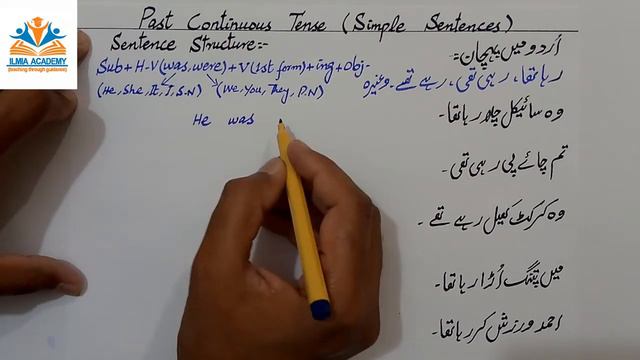 Past Continuous Tense (Simple Sentences)
Sentence Structure:-
Sub + H-V (was, were) + V (1st form) + ing + Obj-
(He, She, It, I, S.N) (We, You, They, P.N)
He was
اُردو میں پہچان:-
رہا تھا، رہی تھی، رہے تھے۔ وغیرہ
وہ سائیکل چلا رہا تھا۔
تم چائے پی رہی تھی۔
وہ کرکٹ کھیل رہے تھے۔
میں پتنگ اُڑا رہا تھا۔
احمد ورزش کر رہا تھا۔
ILMIA ACADEMY
(teaching through guidance)